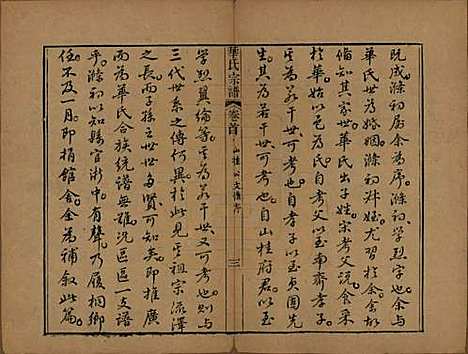 既成滌初屬余為序滌初學烈字也余与
華氏世為婚姻滌初姊妷尤習於余余
備知其家世華氏出子姓宋考父說食采
於華始以為氏自考父以至南齊孝子
寶為若干世可考也自孝子以至貞固先
生其為若干世可考也自山桂府君以至
華氏宗譜
卷首
山桂公支譜序
三
學烈巽綸等其為若干世又可考也則与
三代世系之傳何異於此見其祖宗流澤
之長而子孫之世世多賢可知矣即推廣
而為華氏合族統譜無難況區區一支譜
乎滌初以知縣官浙中有聲乃履桐鄉
任不及一月即捐館舍余為補敘此篇